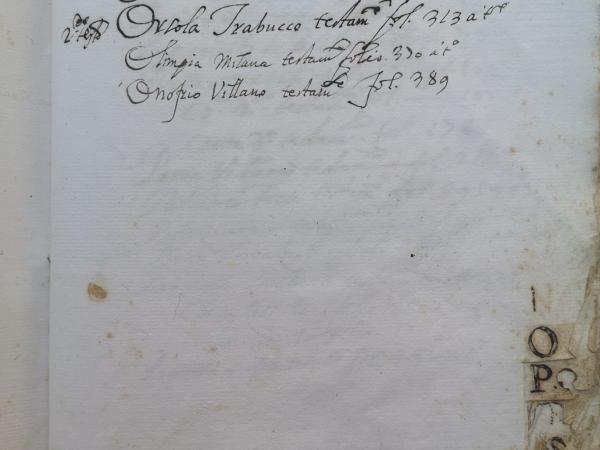 Orsola Trabucco testam.to fol. 313 a t.o
Olimpia Milana testam.to folio 370 a t.o
Onofrio Villano testam.to fol. 389
O
P.Q
S